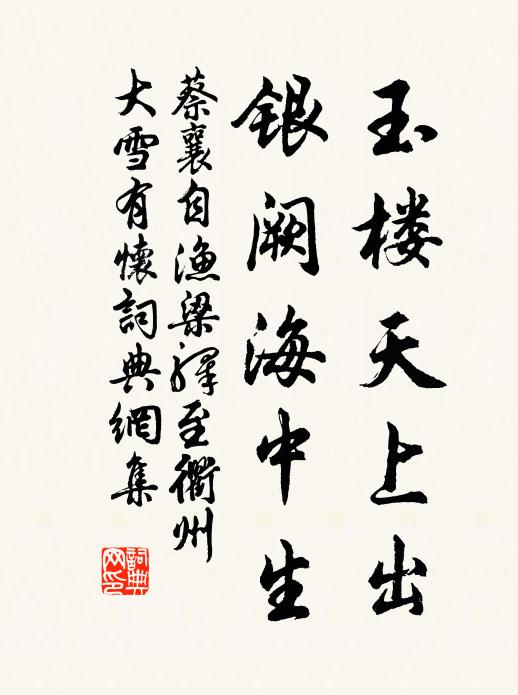 玉楼天上出
银阙海中生
蔡襄自渔梁驿至衢州
大雪有懷詞典網集
詞典网印